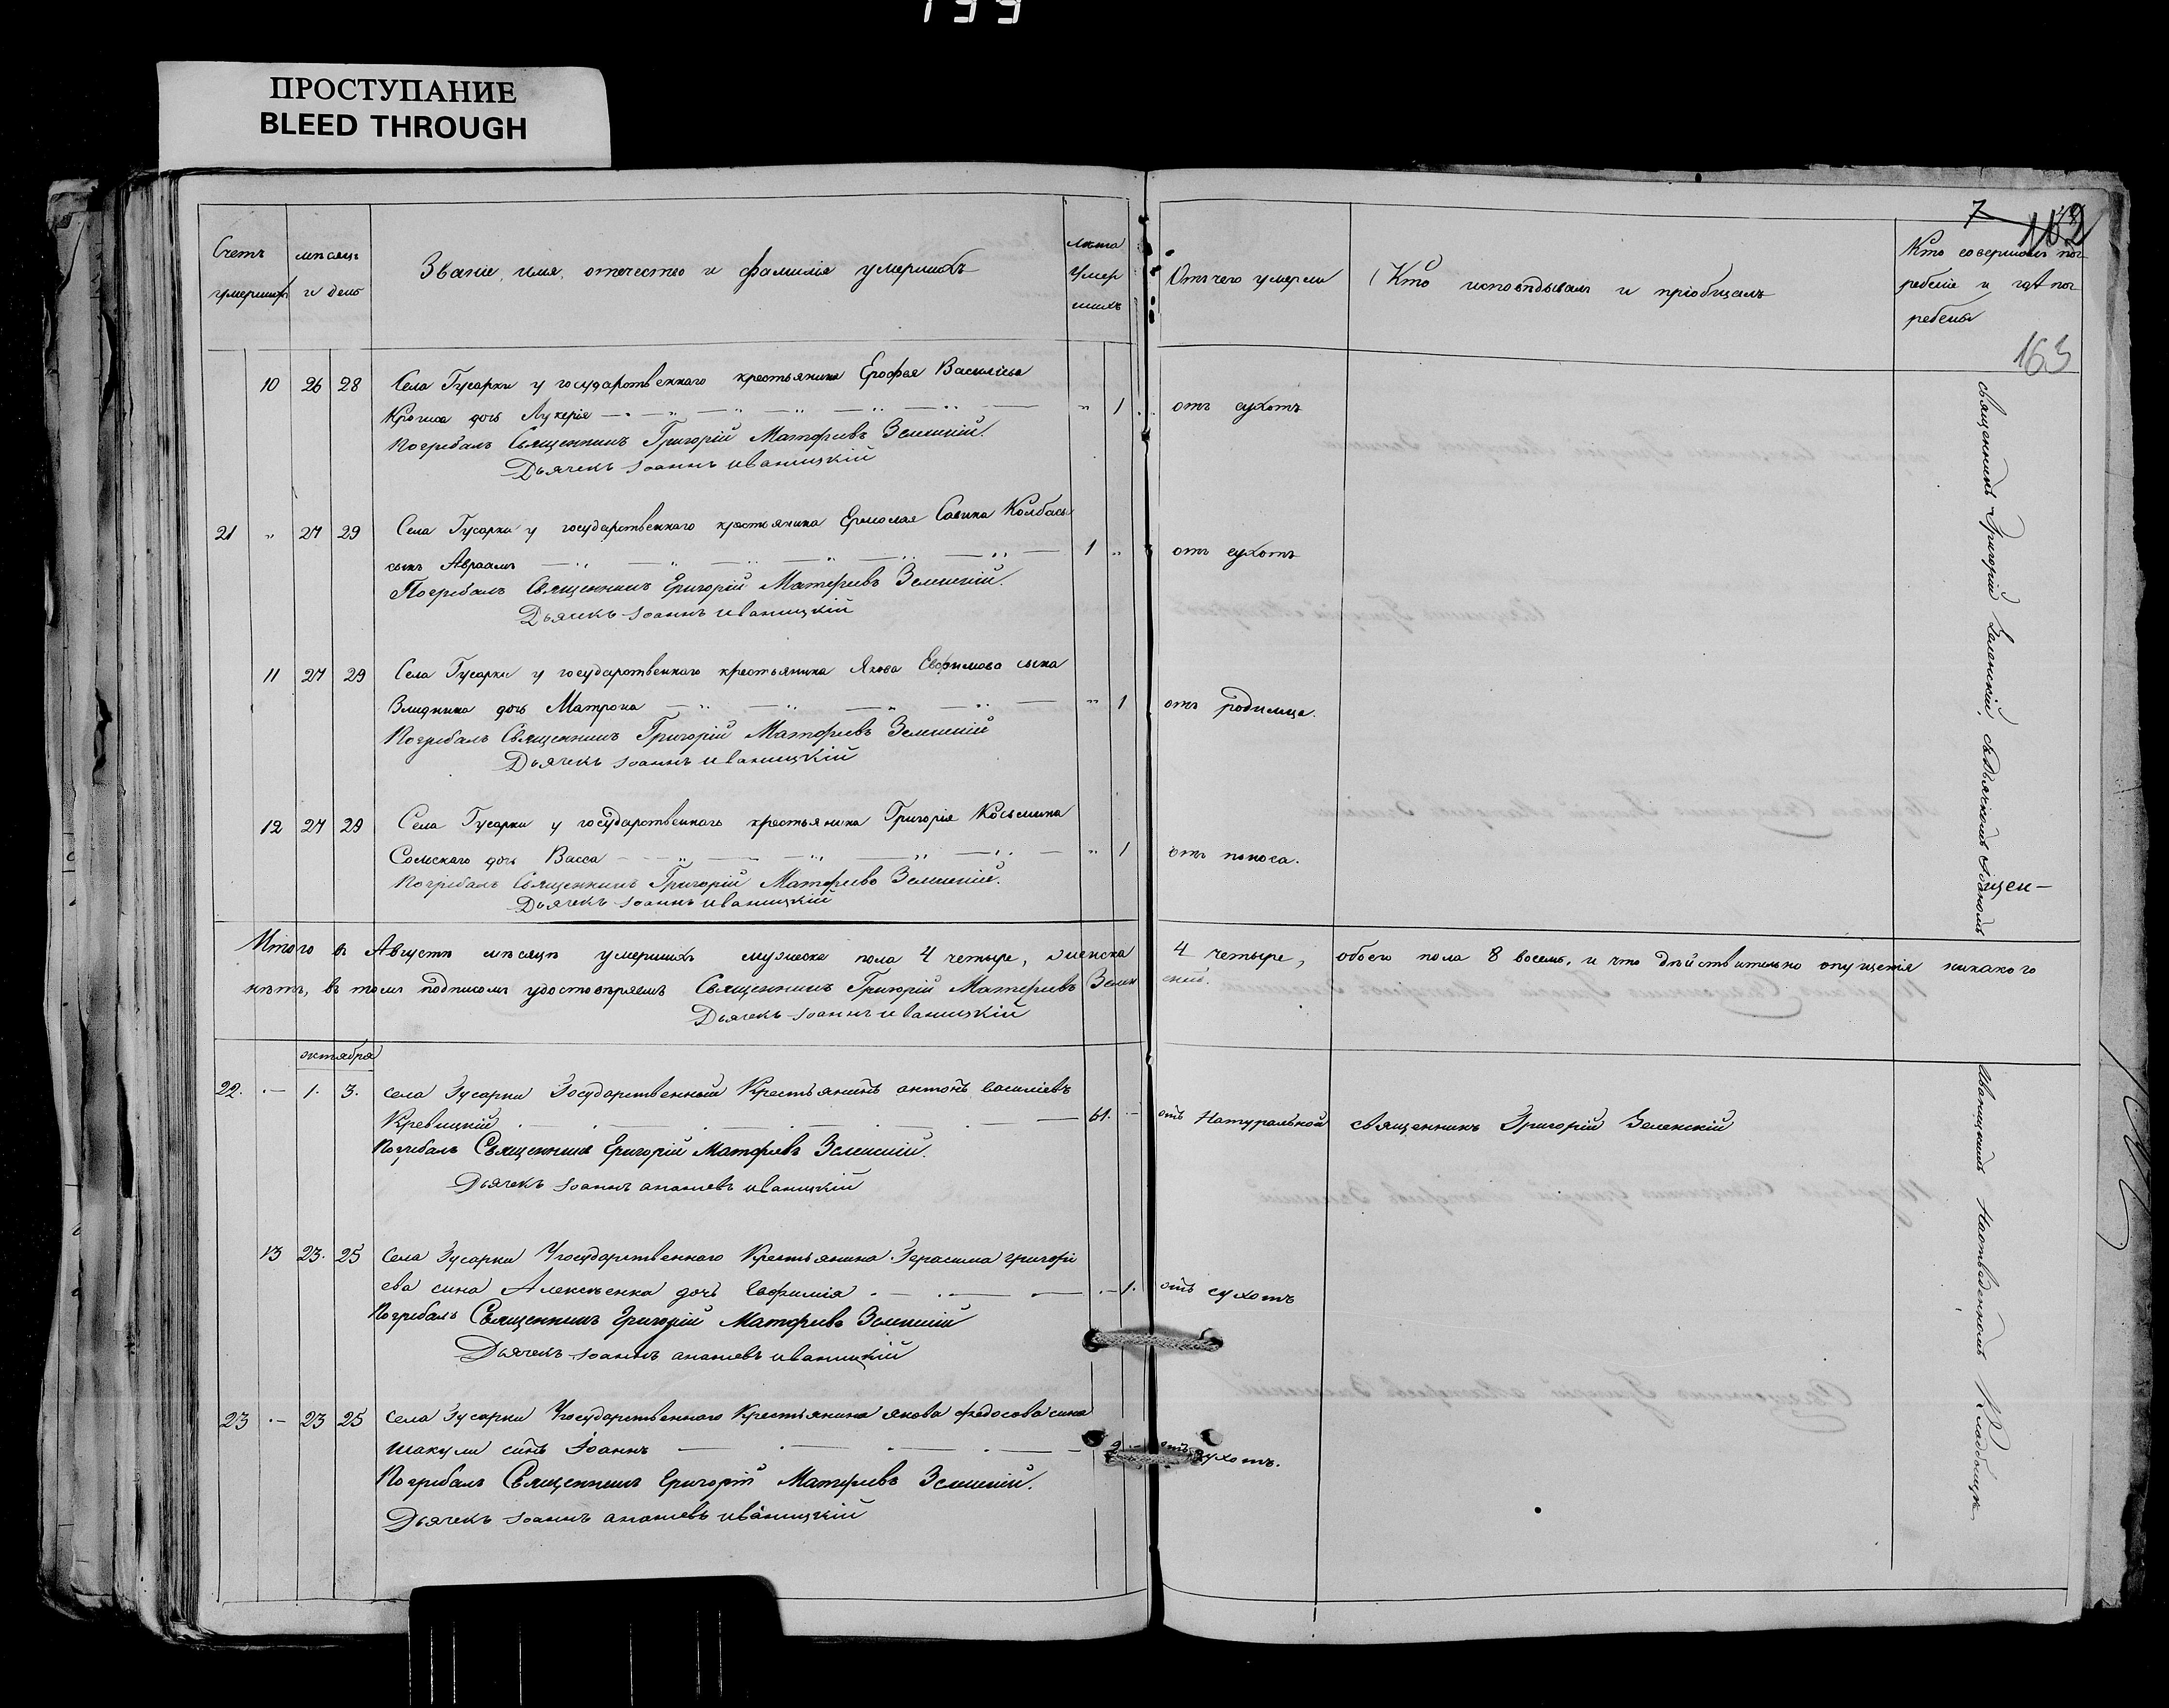 199
ПРОСТУПАНИЕ
BLEED THROUGH
7
163
Счетъ умершихъ
мѣсяцъ и день
Званіе, имя, отечество и фамилія умершихъ
лѣта умершихъ
Отъ чего умерли
Кто исповѣдывалъ и пріобщалъ
Кто совершалъ погребеніе и гдѣ погребены
10 26 28 Села Гусарки у государственнаго крестьянина Ерофея Васильева
дочь Лукерія " 1 отъ сухотъ
Погребалъ Священникъ Григорій Матфіевъ Зеленскій.
Дьячекъ Іоаннъ Иваницкій
21 " 27 29 Села Гусарки у государственнаго крестьянина Ермолая Савина Колбасы
сынъ Авраамъ 1 " отъ сухотъ
Погребалъ Священникъ Григорій Матфіевъ Зеленскій.
Дьячекъ Іоаннъ Иваницкій
11 27 29 Села Гусарки у государственнаго крестьянина Якова Евфимова сына
дочь Матрона " 1 отъ родимца.
Погребалъ Священникъ Григорій Матфіевъ Зеленскій
Дьячекъ Іоаннъ Иваницкій
12 27 29 Села Гусарки у государственнаго крестьянина Григорія Косьмина
Сомскаго дочь Васса " 1 отъ поноса.
Погребалъ Священникъ Григорій Матфіевъ Зеленскій.
Дьячекъ Іоаннъ Иваницкій
Итого въ Августѣ мѣсяцѣ умершихъ мужеска пола 4 четыре, женска 4 четыре, обоего пола 8 восемь, и что дѣйствительно опущенія никакого
нѣтъ, въ томъ подписомъ удостовѣряемъ Священникъ Григорій Матфіевъ Зеленскій.
Дьячекъ Іоаннъ Иваницкій
октября
22. 1. 3. села Гусарки Государственный Крестьянинъ антонъ васильевъ
Кревицкій 61. отъ Натуральной священникъ Григорій Зеленскій
Погребалъ Священникъ Григорій Матфіевъ Зеленскій.
Дьячекъ Іоаннъ ананіевъ иваницкій
13 23. 25 села Гусарки У государственнаго Крестьянина Герасима григорі
ева сина Алексѣенка дочь Евфимія 1. отъ сухотъ
Погребалъ Священникъ Григорій Матфіевъ Зеленскій
Дьячекъ Іоаннъ ананіевъ иваницкій
23 23 25 села Гусарки У государственнаго Крестьянина якова федосова сина
шакули синъ Іоаннъ 2 отъ сухотъ.
Погребалъ Священникъ Григорій Матфіевъ Зеленскій.
Дьячекъ Іоаннъ ананіевъ иваницкій
священникъ Григорій Зеленскій, съ дьячкомъ Іоанномъ
Иваницкимъ На отведенномъ Кладбищѣ